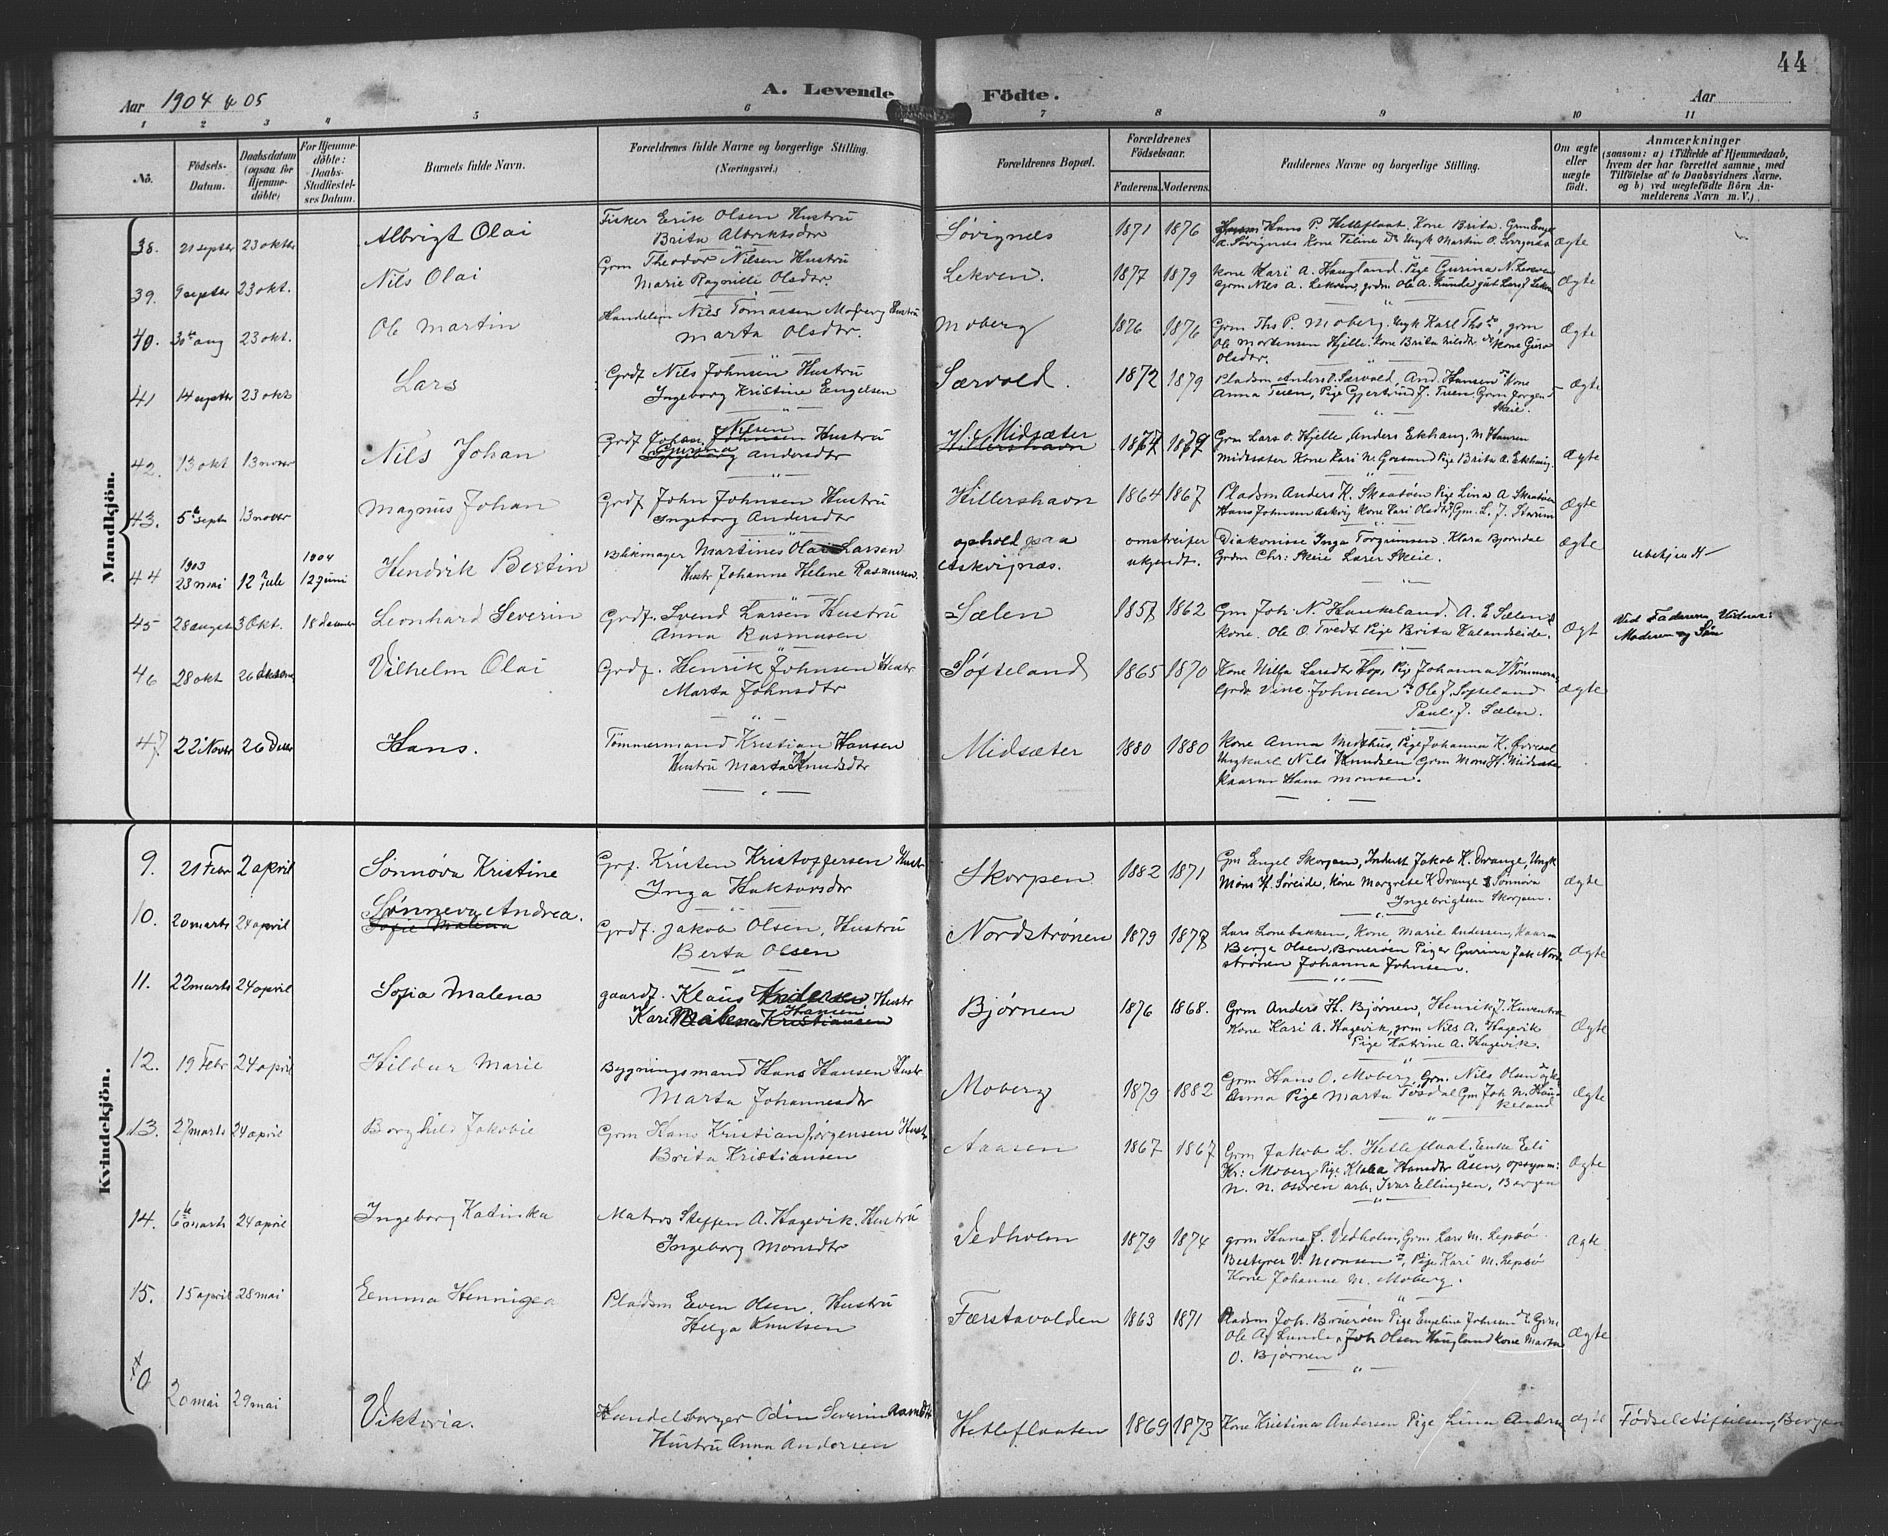 44
Aar 1904 & 05
A. Levende Födte.
Aar
1 2 3 4 5 6 7 8 9 10 11
No.
Födsels-Datum.
Daabsdatum (ogsaa for Hjemmedöbte)
For Hjemmedöbte: Daabs-Stadfæstelses Datum.
Barnets fulde Navn.
Forældrenes fulde Navne og borgerlige Stilling.
(Næringsvei.)
Forældrenes Bopæl.
Forældrenes Födselsaar.
Faderens. Moderens.
Faddernes Navne og borgerlige Stilling.
Om ægte eller uægte födt.
Anmærkninger
(saasom: a) i Tilfælde af Hjemmedaab, hvem der har forrettet samme, med Tilföielse af to Daabsvidners Navne. og b) ved uægtefödte Börn Anmelderens Navn m. V.)
Mandkjön.
38. 21 septbr 23 oktbr Albrigt Olai Fisker Erik Olsen Hustru
Brita Albriktsdtr Søvignes 1871 1876 Hans P. Hetleflaat. Kone Brita Ægte
39. 9 septbr 23 okt. Nils Olai Grm Theodor Nilsen Hustru
Marie Ragnille Olsdtr. Lekven. 1877 1879 Kone Kari A. Haugland. Pige Gurina N. Lekven
Grm Nils A. Lekven, Ægte
40. 30te aug 23 okt. Ole Martin Nils Tomassen Moberg Hustru
Marta Olsdtr. Moberg 1876 1876 Grm Ths P. Moberg. Ungk Karl Ths, grm
Ole Mortensen Hjelle. Kone Brita Nilsdtr Kone Guro
Olsdtr. Ægte
41 14 septbr 23 okt Lars Grdf Nils Johnsen Hustru
Ingeborg Kristine Engelsen Særvold. 1872 1879 Pladsm Anders Særvold, And. Hansen Kone
Anna Tuen, Pige Gjertrud J. Tuen. Grm Jørgen
Skeie. Ægte
42. 13 okt 13 novbr Nils Johan Grdf Johan Nilsen Hustru
Gurina Andersdtr Midsæter 18 18 Grm Lars O. Hjelle, Anders Ekhaug, M Hansen
Midtsæter Kone Kari N. Pige Brita A. Ekhaug Ægte
43. 5te septbr 13 novbr Magnus Johan Grdf John Johnsen Hustru
Ingeborg Andersdtr Hillershavn 1864 1867 Pladsm Anders K. Skaatøen Pige Lina A Skaatøen
Hans Johnsen Askvig Kone Kari Olsdtr, Gm. L. J. Ægte
44 1903 23 mai 12 Jule 1904 12 Juni Hendrik Bertin Blikmager Martines Olai Larsen
Hustr Johanna Helene Rasmusen. ophold paa
Askvignæs. omstreifer
ukjendt. Diakonisse Inga Torgrimsen. Klara Bjorndal
Grdm Chr: Skeie Lærer Skeie. Ægte ubekjendt
45 28 august 3 Okt. 18 Leonhard Severin Grdf. Svend Larsen Hustru
Anna Rasmusen Sælen 1857 1862 Gm Joh. N. Haukeland. A. E. Sælen
Kone. Ole O. Tvedt Pige Brita Ægt Ved Faderen Vidner:
Moderen og Søn
46 28 okt 26 Vilhelm Olai Grdf. Henrik Johnsen Hustr
Marta Johnsdtr Søfteland 1865 1870 Kone Larsdtr Hop, Pige Johanna
Johnsen Ole J. Søfteland
Paul J. Sælen. Ægte
47 22 Novbr 26 Hans. Tömmermand Kristian Hansen
Hustru Marta Knudsdtr Midsæter 1880 1880 Kone Anna Midthus, Pige Johanna K.
Ungkarl Nils Knudsen Grm Mons H. Midsæter
Kaarm Hans Monsen.
Kvindekjön.
9. 21 Febr 2 april Sønnøva Kristine Grf. Kristen Kristoffersen Hustr
Inga Haktorsdtr Skorpen 1882 1871 Gm Engel Skorpen, Inderst Jakob K. Drange, Ungk
Mons H. Søreide, Kone Margrete K Drange & Sønnøva
Ingebrigtsen Skorpen. Ægte
10. 20 marts 24 april Sønneva Andrea.
Sofie Malena Grdf. Jakob Olsen, Hustru
Berta Olsen Nordstrønen 1879 1878 Lars Lonebakken, Kone Marie Andersen, Kaarm
Berge Olsen, Bruerøen Piger Gurina Jak Nordstrønen
Johanna Johnsen. Ægte
11. 22 marts 24 april Sofia Malena gaardf. Klaus Andersen, Hustr
Kari Hansen Bjørnen 1876 1868. Grm Anders H. Bjørnen, Henrik J.
Kone Kari A. Hagevik, grm Nils A. Hagevik
Pige Katrine A. Hagevik. Ægte
12. 19 Febr 24 april Hildur Marie Bygningsmand Hans Hansen Hustr
Marta Johannesdtr Moberg 1879 1882 Grm Hans O. Moberg, Grm. Nils Olsen
Anna Pige Marta Tøsdal Gm Joh N. Haukeland Ægte
13. 27 marts 24 april Borghild Jakobie Grm Hans Kristian Jørgensen Hustr
Brita Kristiansen Aaasen 1867 1867 Grm Jakob L. Hetleflaat. Enke Eli
Kr: Moberg Pige Klara Hansdtr Åsen, opsynm:
N. N. Osøren arb. Ivar Ellingsen, Bergen Ægte
14. 6te marts 24 april Ingeborg Katinka Matros Steffen A. Hagevik. Hustru
Ingeborg Monsdtr Vedholm 1879 1874 grm Hans J. Vedholm, Grm Lars M. Lepsø
Bestyrer V. Monsen, Pige Kari M. Lepsø
Kone Johanne M. Moberg. Ægte
15. 15 april 28 mai Emma Hennigea Pladsm Even Olsen, Hustru
Helga Knutsen Færstavolden 1863 1871 Pladsm Joh. Bruerøen Pige Engeline Johnsen Grm
Ole A. Lunde, Joh Olsen Haugland Kone Marta
O. Bjørnen Ægte
20 mai 29 mai Viktoria. Handelsborger Odin Severin
Hustru Anna Andersen Hetleflaaten 1869 1873 Kone Kristina Andersen Pige Lina Ægte Fødselstiftelsen, Bergen